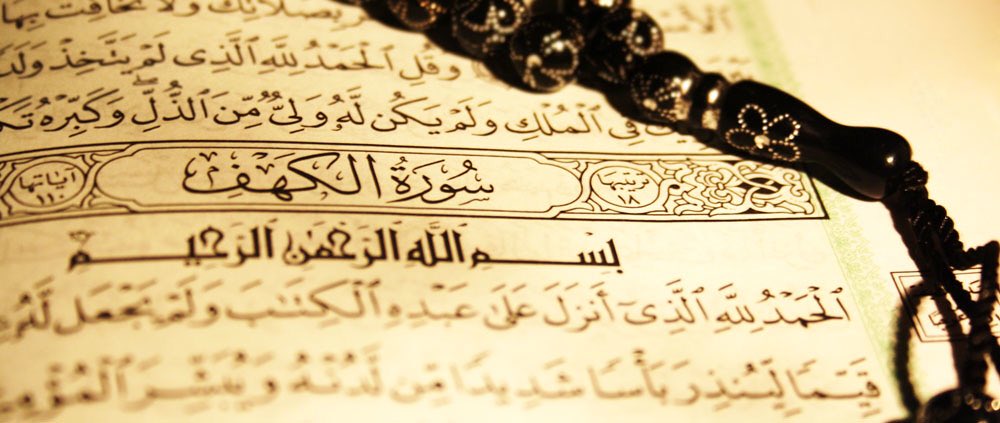 بِصَلَاتِكَ وَلَا تُخَافِتْ بِهَا
وَقُلِ ٱلْحَمْدُ لِلَّهِ ٱلَّذِى لَمْ يَتَّخِذْ
فِى ٱلْمُلْكِ وَلَمْ يَكُن لَّهُۥ وَلِىٌّ مِّنَ ٱلذُّلِّ ۖ وَكَبِّرْهُ
ترتيبها ١٨ سُورَةُ الكَهْفِ آياتها ١١٠
بِسْمِ ٱللَّهِ ٱلرَّحْمَٰنِ ٱلرَّحِيمِ
ٱلْحَمْدُ لِلَّهِ ٱلَّذِىٓ أَنزَلَ عَلَىٰ عَبْدِهِ ٱلْكِتَٰبَ وَلَمْ يَجْعَل لَّهُۥ
قَيِّمًا لِّيُنذِرَ بَأْسًا شَدِيدًا مِّن لَّدُنْهُ وَيُبَشِّرَ